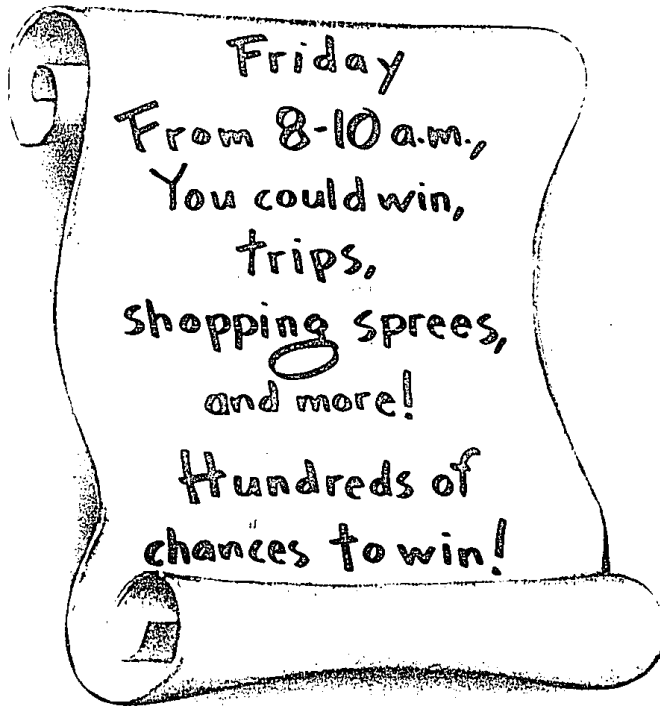 Friday
From 8-10 a.m.,
You could win,
trips,
shopping sprees,
and more!
Hundreds of
chances to win!